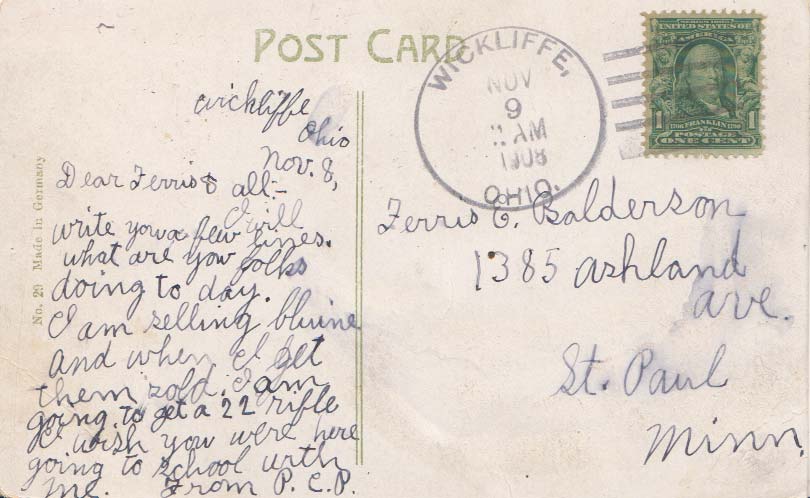 POST CARD
WICKLIFFE,
NOV
9
11 AM
1908
OHIO.
1
1706 FRANKLIN 1790
POSTAGE
ONE CENT
1
No. 29 Made in Germany
wickliffe
Ohio
Nov. 8,
Dear Ferris & all:-
I will
write you a few lines.
what are you folks
doing to day.
I am selling bluine
and when I get
them sold. I am
going to get a 22 rifle
I wish you were here
going to school with
me. From P. C. P.
Ferris E. Balderson
1385 Ashland
ave.
St. Paul
Minn.